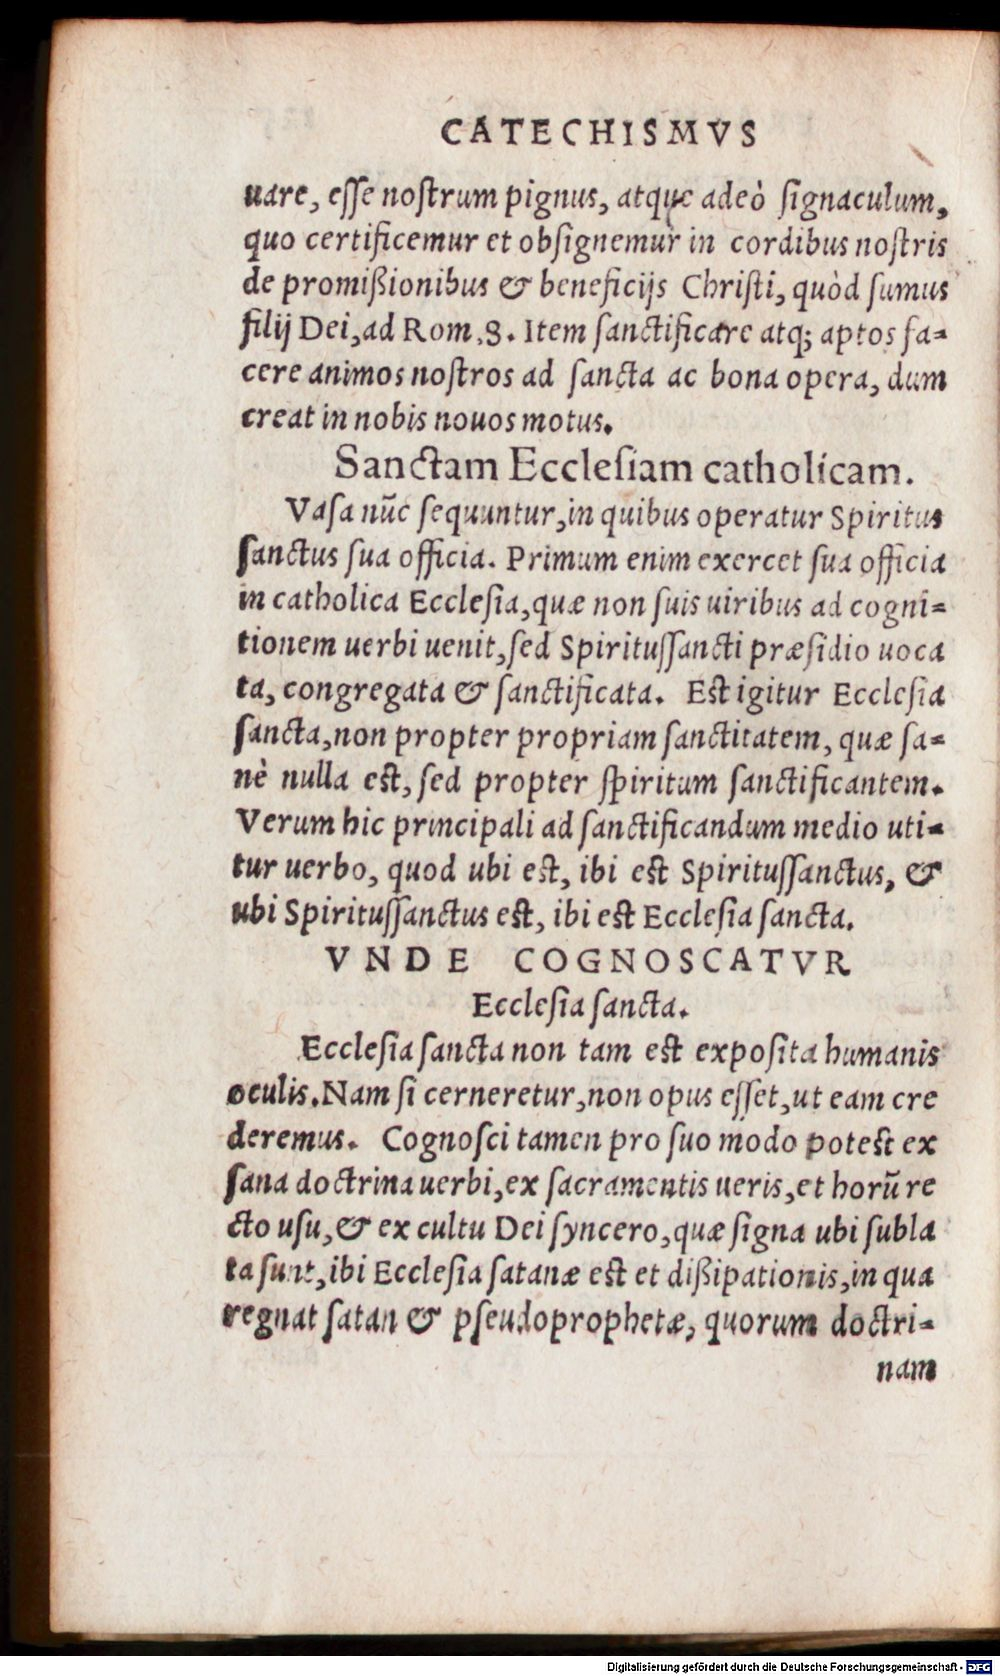 CATECHISMVS
uare, eſſe noſtrum pignus, atque adeò ſignaculum,
quo certificemur et obſignemur in cordibus noſtris
de promißionibus & beneficijs Chriſti, quòd ſumus
filij Dei, ad Rom. 8. Item ſanctificare atq; aptos fa=
cere animos noſtros ad ſancta ac bona opera, dum
creat in nobis nouos motus.
Sanctam Eccleſiam catholicam.
Vaſa nūc ſequuntur, in quibus operatur Spiritus
ſanctus ſua officia. Primum enim exercet ſua officia
in catholica Eccleſia, quæ non ſuis uiribus ad cogni=
tionem uerbi uenit, ſed Spirituſſancti præſidio uoca
ta, congregata & ſanctificata. Est igitur Eccleſia
ſancta, non propter propriam ſanctitatem, quæ ſa=
nè nulla est, ſed propter ſpiritum ſanctificantem.
Verum hic principali ad ſanctificandum medio uti=
tur uerbo, quod ubi est, ibi est Spirituſſanctus, &
ubi Spirituſſanctus est, ibi est Eccleſia ſancta.
VNDE COGNOSCATVR
Eccleſia ſancta.
Eccleſia ſancta non tam est expoſita humanis
oculis. Nam ſi cerneretur, non opus eſſet, ut eam cre
deremus. Cognoſci tamen pro ſuo modo potest ex
ſana doctrina uerbi, ex ſacramentis ueris, et horū re
cto uſu, & ex cultu Dei ſyncero, quæ ſigna ubi ſubla
ta ſunt, ibi Eccleſia ſatanæ est et dißipationis, in qua
regnat ſatan & pſeudoprophetæ, quorum doctri=
nam
Digitalisierung gefördert durch die Deutsche Forschungsgemeinschaft - DFG